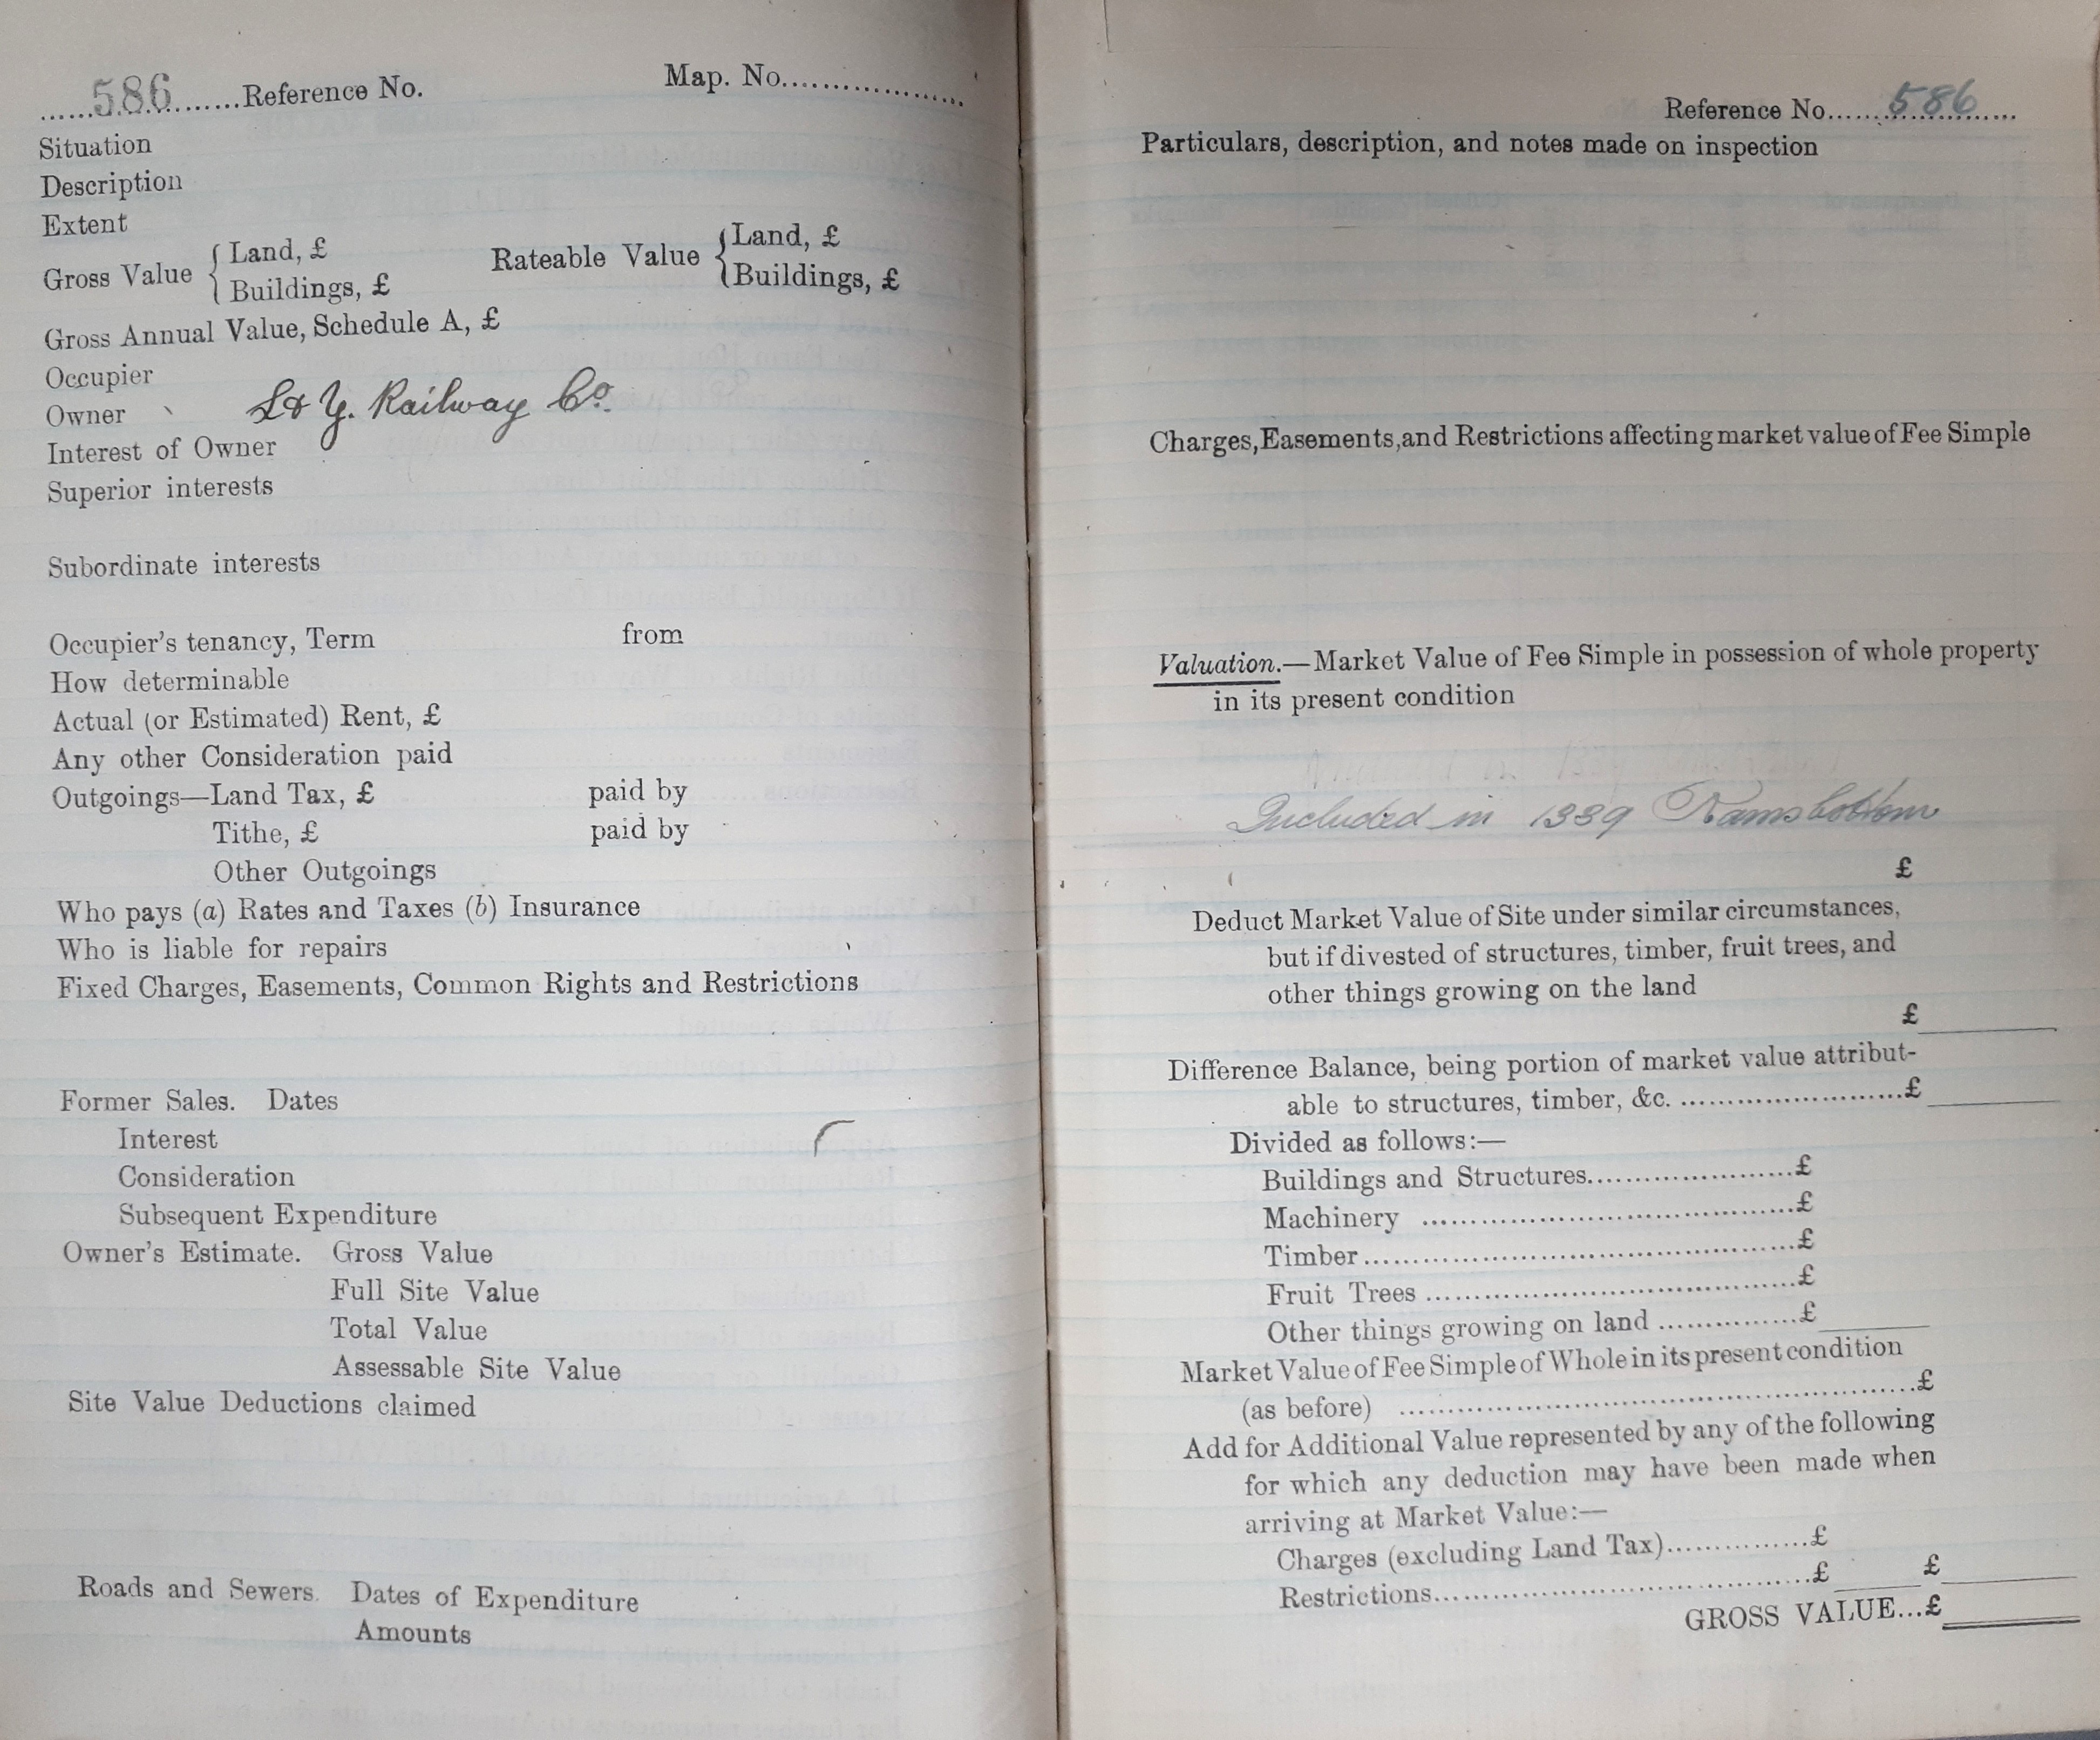 ......586..........Reference No.
Map. No....................
Situation
Description
Extent
Gross Value { Land, £
Buildings, £
Rateable Value { Land, £
Buildings, £
Gross Annual Value, Schedule A, £
Occupier
Owner L & Y. Railway Co.
Interest of Owner
Superior interests
Subordinate interests
Occupier's tenancy, Term from
How determinable
Actual (or Estimated) Rent, £
Any other Consideration paid
Outgoings—Land Tax, £ paid by
Tithe, £ paid by
Other Outgoings
Who pays (a) Rates and Taxes (b) Insurance
Who is liable for repairs
Fixed Charges, Easements, Common Rights and Restrictions
Former Sales. Dates
Interest
Consideration
Subsequent Expenditure
Owner's Estimate. Gross Value
Full Site Value
Total Value
Assessable Site Value
Site Value Deductions claimed
Roads and Sewers. Dates of Expenditure
Amounts
Reference No......586..........
Particulars, description, and notes made on inspection
Charges, Easements, and Restrictions affecting market value of Fee Simple
Valuation.—Market Value of Fee Simple in possession of whole property
in its present condition
Included in 1339 Ramsbottom
£
Deduct Market Value of Site under similar circumstances,
but if divested of structures, timber, fruit trees, and
other things growing on the land
£
Difference Balance, being portion of market value attribut-
able to structures, timber, &c. .........................£
Divided as follows:—
Buildings and Structures......................£
Machinery .......................................£
Timber.............................................£
Fruit Trees .......................................£
Other things growing on land ...............£
Market Value of Fee Simple of Whole in its present condition
(as before) .....................................................£
Add for Additional Value represented by any of the following
for which any deduction may have been made when
arriving at Market Value:—
Charges (excluding Land Tax)...............£
Restrictions.......................................£ £
GROSS VALUE...£